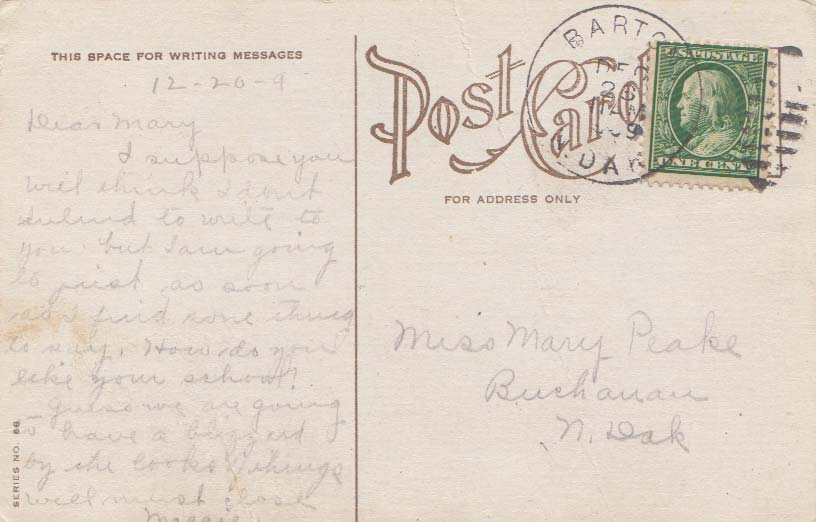 THIS SPACE FOR WRITING MESSAGES
12-26-9
Dear Mary
I suppose you
will think I dont
intend to write to
you but I am going
to just as soon
as I find some thing
to say. How do you
like your school?
Guess we are going
to have a blizzard
by the looks of things
well must close
Maggie.
SERIES NO. 68
Post Card
FOR ADDRESS ONLY
BARTO
DEC
26
N. DAK
U.S. POSTAGE
ONE CENT
Miss Mary Peake
Buchanan
N. Dak